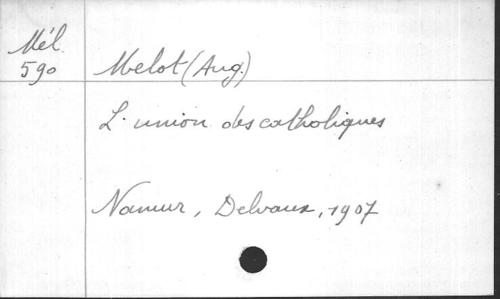 Mél.
590
Melot (Aug.)
L'union des catholiques
Namur, Delvaux, 1907